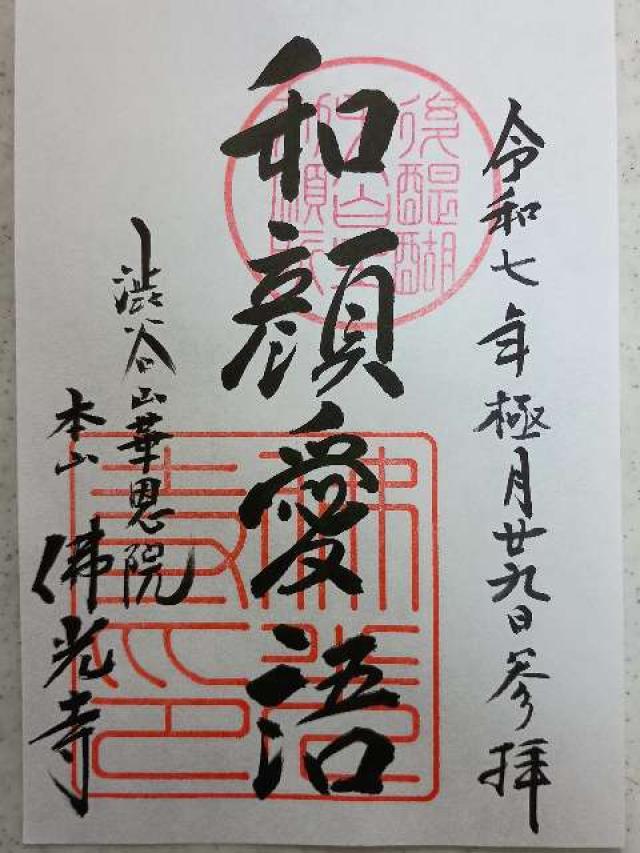 令和七年極月廿九日参拝
和顔愛語
渋谷山華恩院
本山 佛光寺
後醍醐
勅願所
佛光寺印